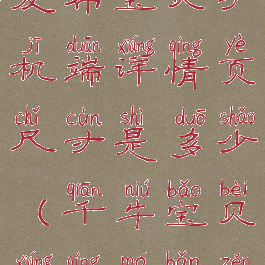 jī duān xiáng qíng yè
机端详情页
chǐ cùn shì duō shǎo
尺寸是多少
qiān niú bǎo bèi
（千牛宝贝
xiáng qíng mó bǎn zěn